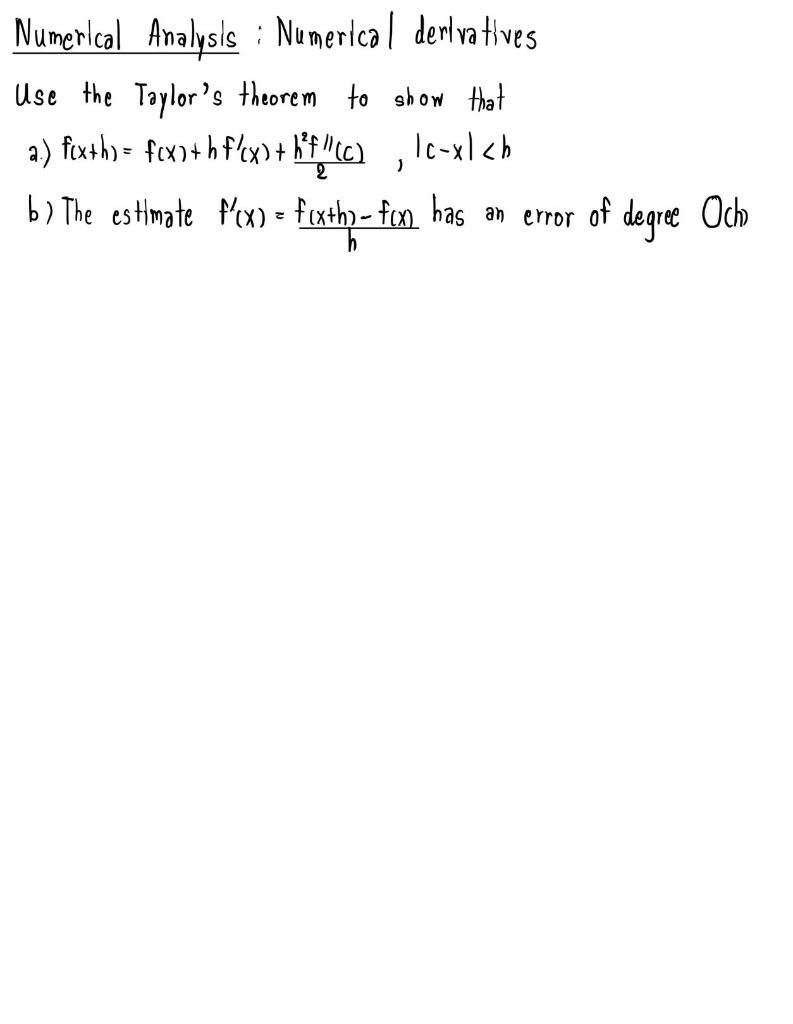 Numerical Analysis : Numerical derivatives
Use the Taylor's theorem to show that
a.) f(x+h) = f(x) + h f'(x) + h²f''(c)/2 , |c-x| < h
b) The estimate f'(x) = f(x+h) - f(x)/h has an error of degree O(h)